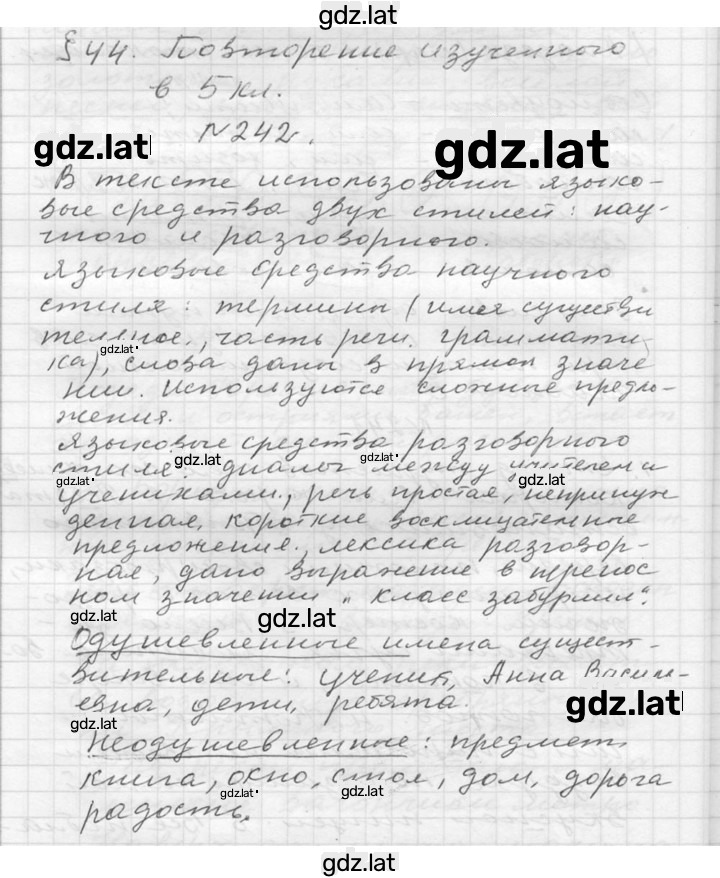 gdz.lat
§ 44. Повторение изученного
в 5 кл.
№242.
gdz.lat
gdz.lat
В тексте использованы языко-
вые средства двух стилей: нау-
чного и разговорного.
Языковые средства научного
стиля: термины (имя существи
тельное, часть речи. граммати
gdz.lat
ка), слова даны в прямом значе
нии. Используются сложные предло-
жения.
Языковые средства разговорного
стиля: диалог между учителем и
gdz.lat
gdz.lat
gdz.lat
gdz.lat
учениками, речь простая, непринуж
денная, короткие восклицательные
предложения, лексика разговор-
ная, дано выражение в перенос
ном значении „класс забурлил“.
gdz.lat
gdz.lat
Одушевленные имена сущест-
вительные: ученик, Анна Василь-
евна, дети, ребята.
gdz.lat
gdz.lat
Неодушевленные: предмет
книга, окно, стол, дом, дорога
gdz.lat
gdz.lat
радость.
gdz.lat